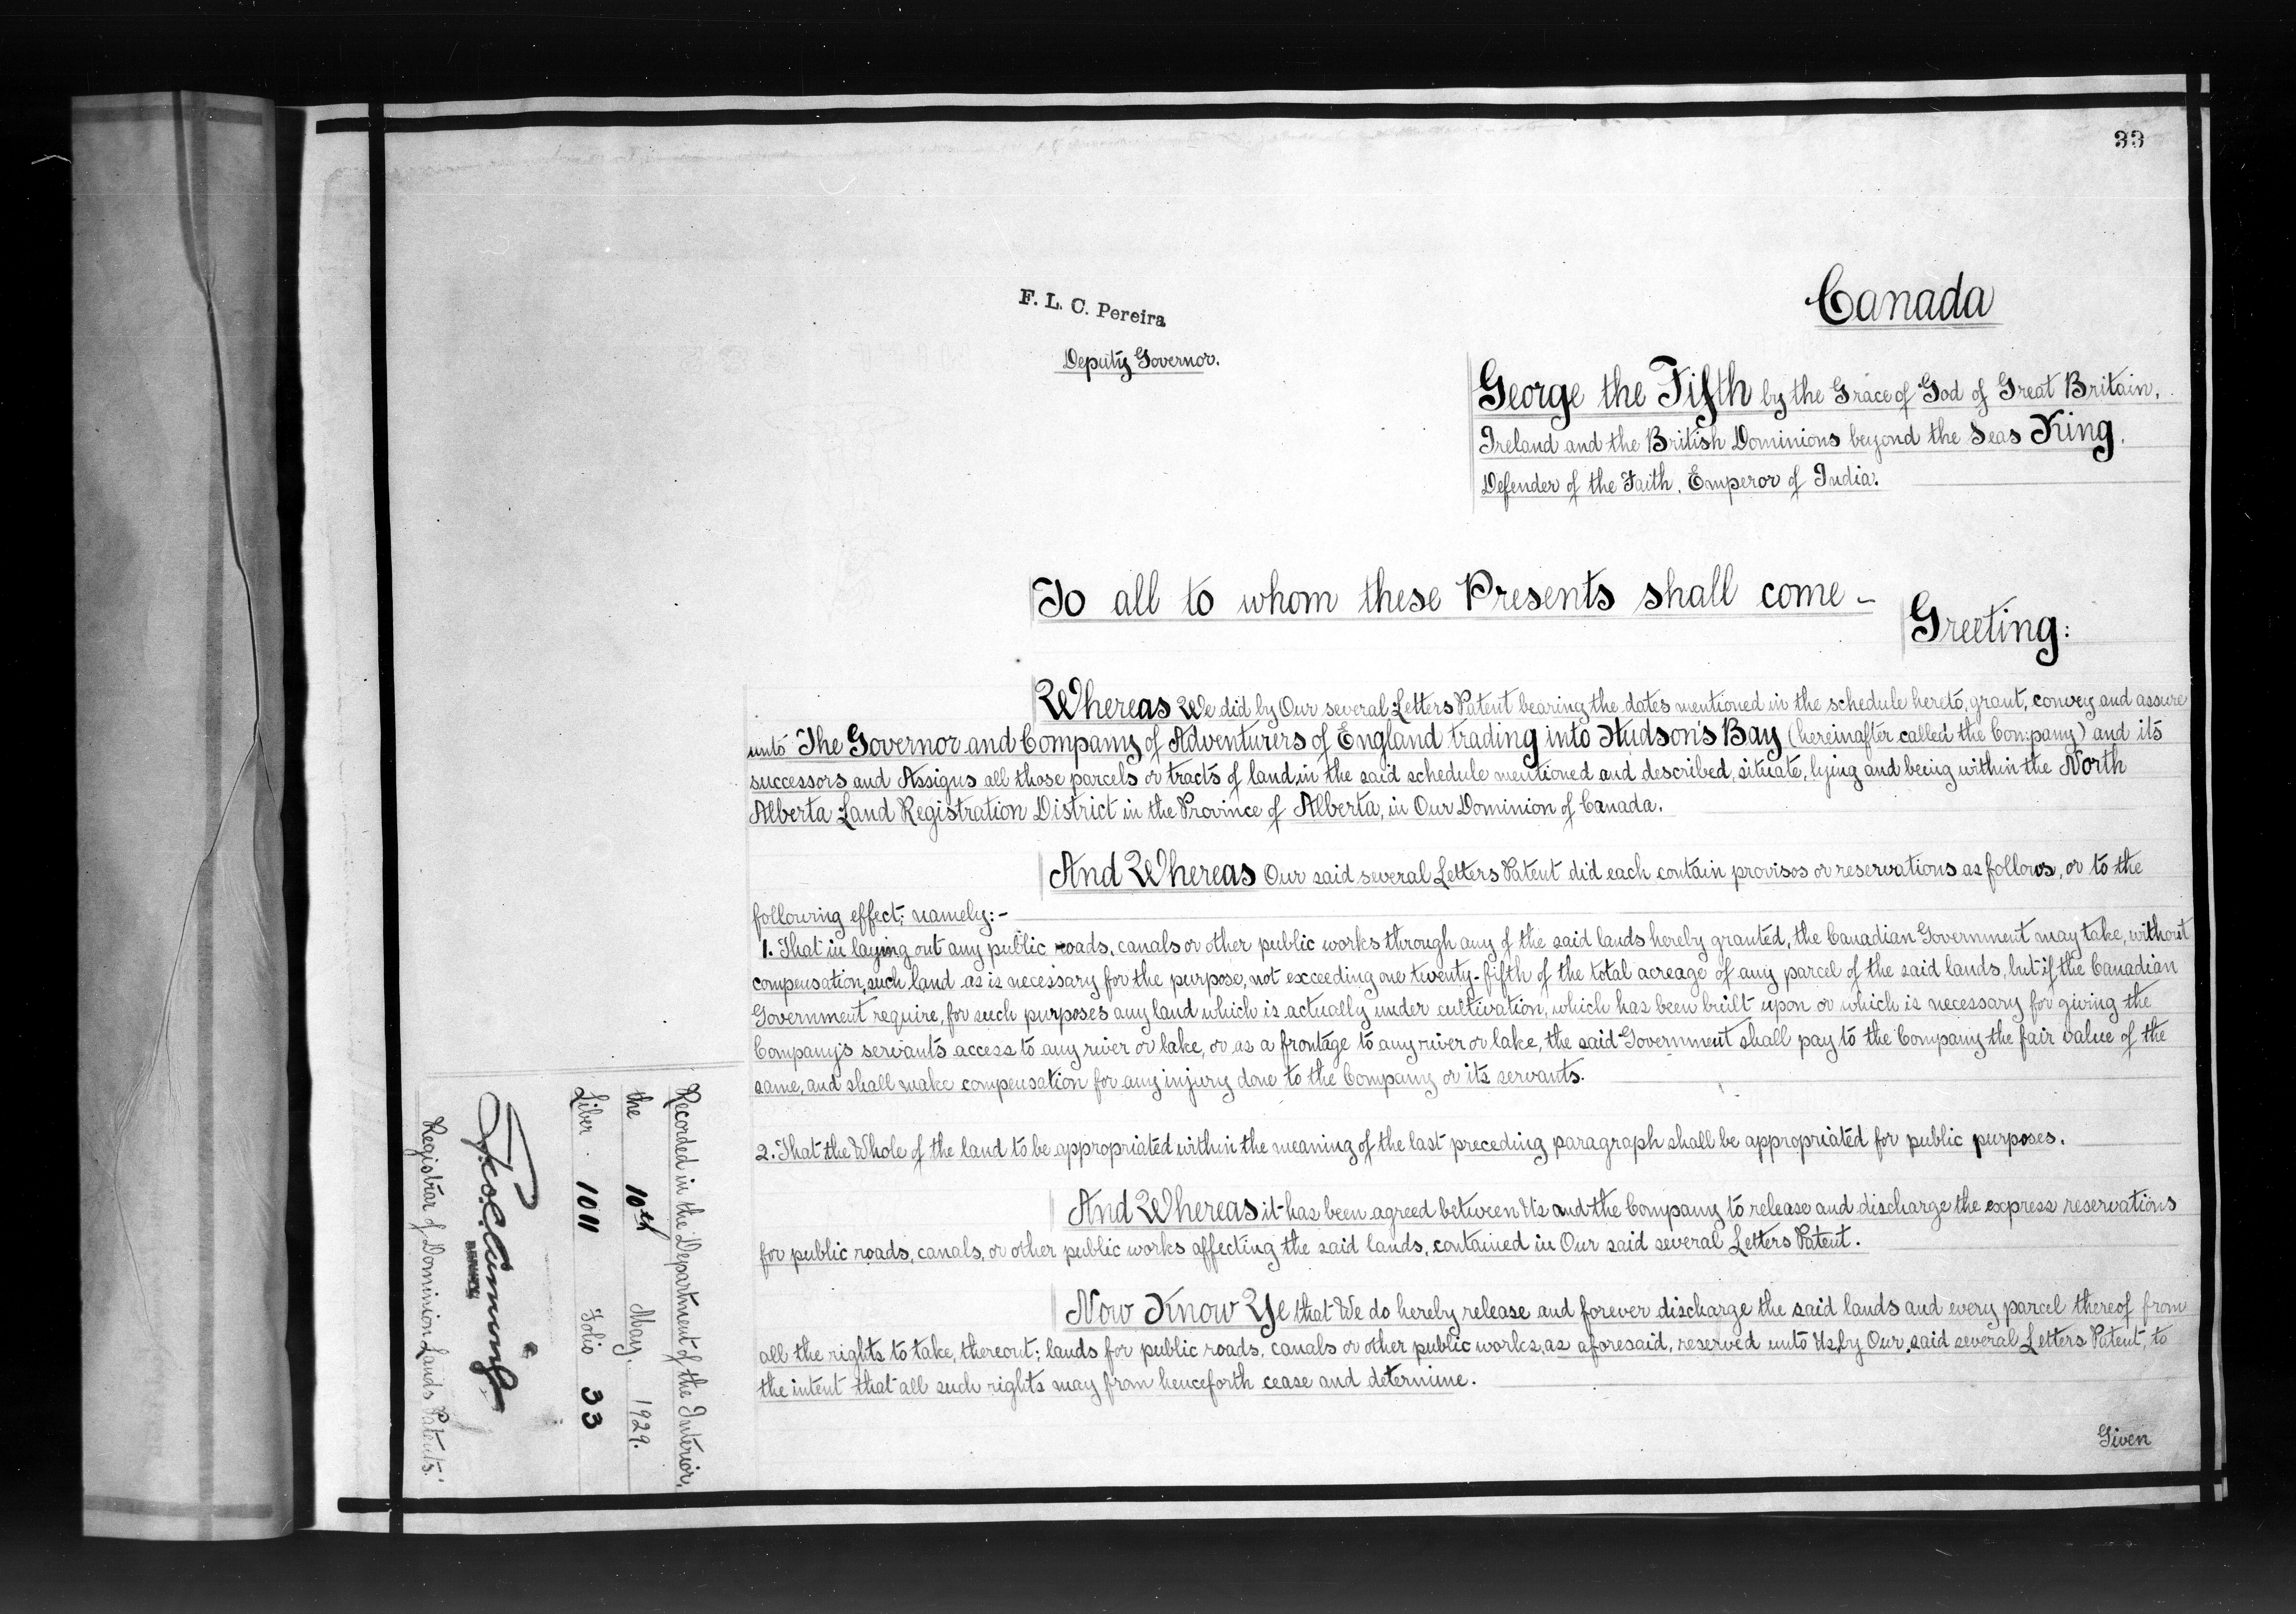 33
Canada
F. L. C. Pereira
Deputy Governor.
George the Fifth by the Grace of God of Great Britain,
Ireland and the British Dominions beyond the Seas King,
Defender of the Faith, Emperor of India.
To all to whom these Presents shall come –
Greeting:
Whereas We did by Our several Letters Patent bearing the dates mentioned in the schedule hereto, grant, convey and assure
unto The Governor and Company of Adventurers of England trading into Hudson's Bay (hereinafter called the Company) and its
successors and Assigns all those parcels or tracts of land, in the said schedule mentioned and described, situate, lying and being within the North
Alberta Land Registration District in the Province of Alberta, in Our Dominion of Canada.
And Whereas Our said several Letters Patent did each contain provisos or reservations as follows, or to the
following effect; namely:-
1. That in laying out any public roads, canals or other public works through any of the said lands hereby granted, the Canadian Government may take, without
compensation, such land as is necessary for the purpose, not exceeding one twenty-fifth of the total acreage of any parcel of the said lands, but if the Canadian
Government require, for such purposes any land which is actually under cultivation, which has been built upon or which is necessary for giving the
Company's servants access to any river or lake, or as a frontage to any river or lake, the said Government shall pay to the Company the fair value of the
same, and shall make compensation for any injury done to the Company or its servants.
2. That the Whole of the land to be appropriated within the meaning of the last preceding paragraph shall be appropriated for public purposes.
And Whereas it has been agreed between Us and the Company to release and discharge the express reservations
for public roads, canals, or other public works affecting the said lands, contained in Our said several Letters Patent.
Now Know Ye that We do hereby release and forever discharge the said lands and every parcel thereof from
all the rights to take, thereout; lands for public roads, canals or other public works, as aforesaid, reserved unto Us, by Our said several Letters Patent, to
the intent that all such rights may from henceforth cease and determine.
Given
Recorded in the Department of the Interior,
the 10th May. 1929.
Liber 1011 Folio 33
Registrar of Dominion Lands Patents.